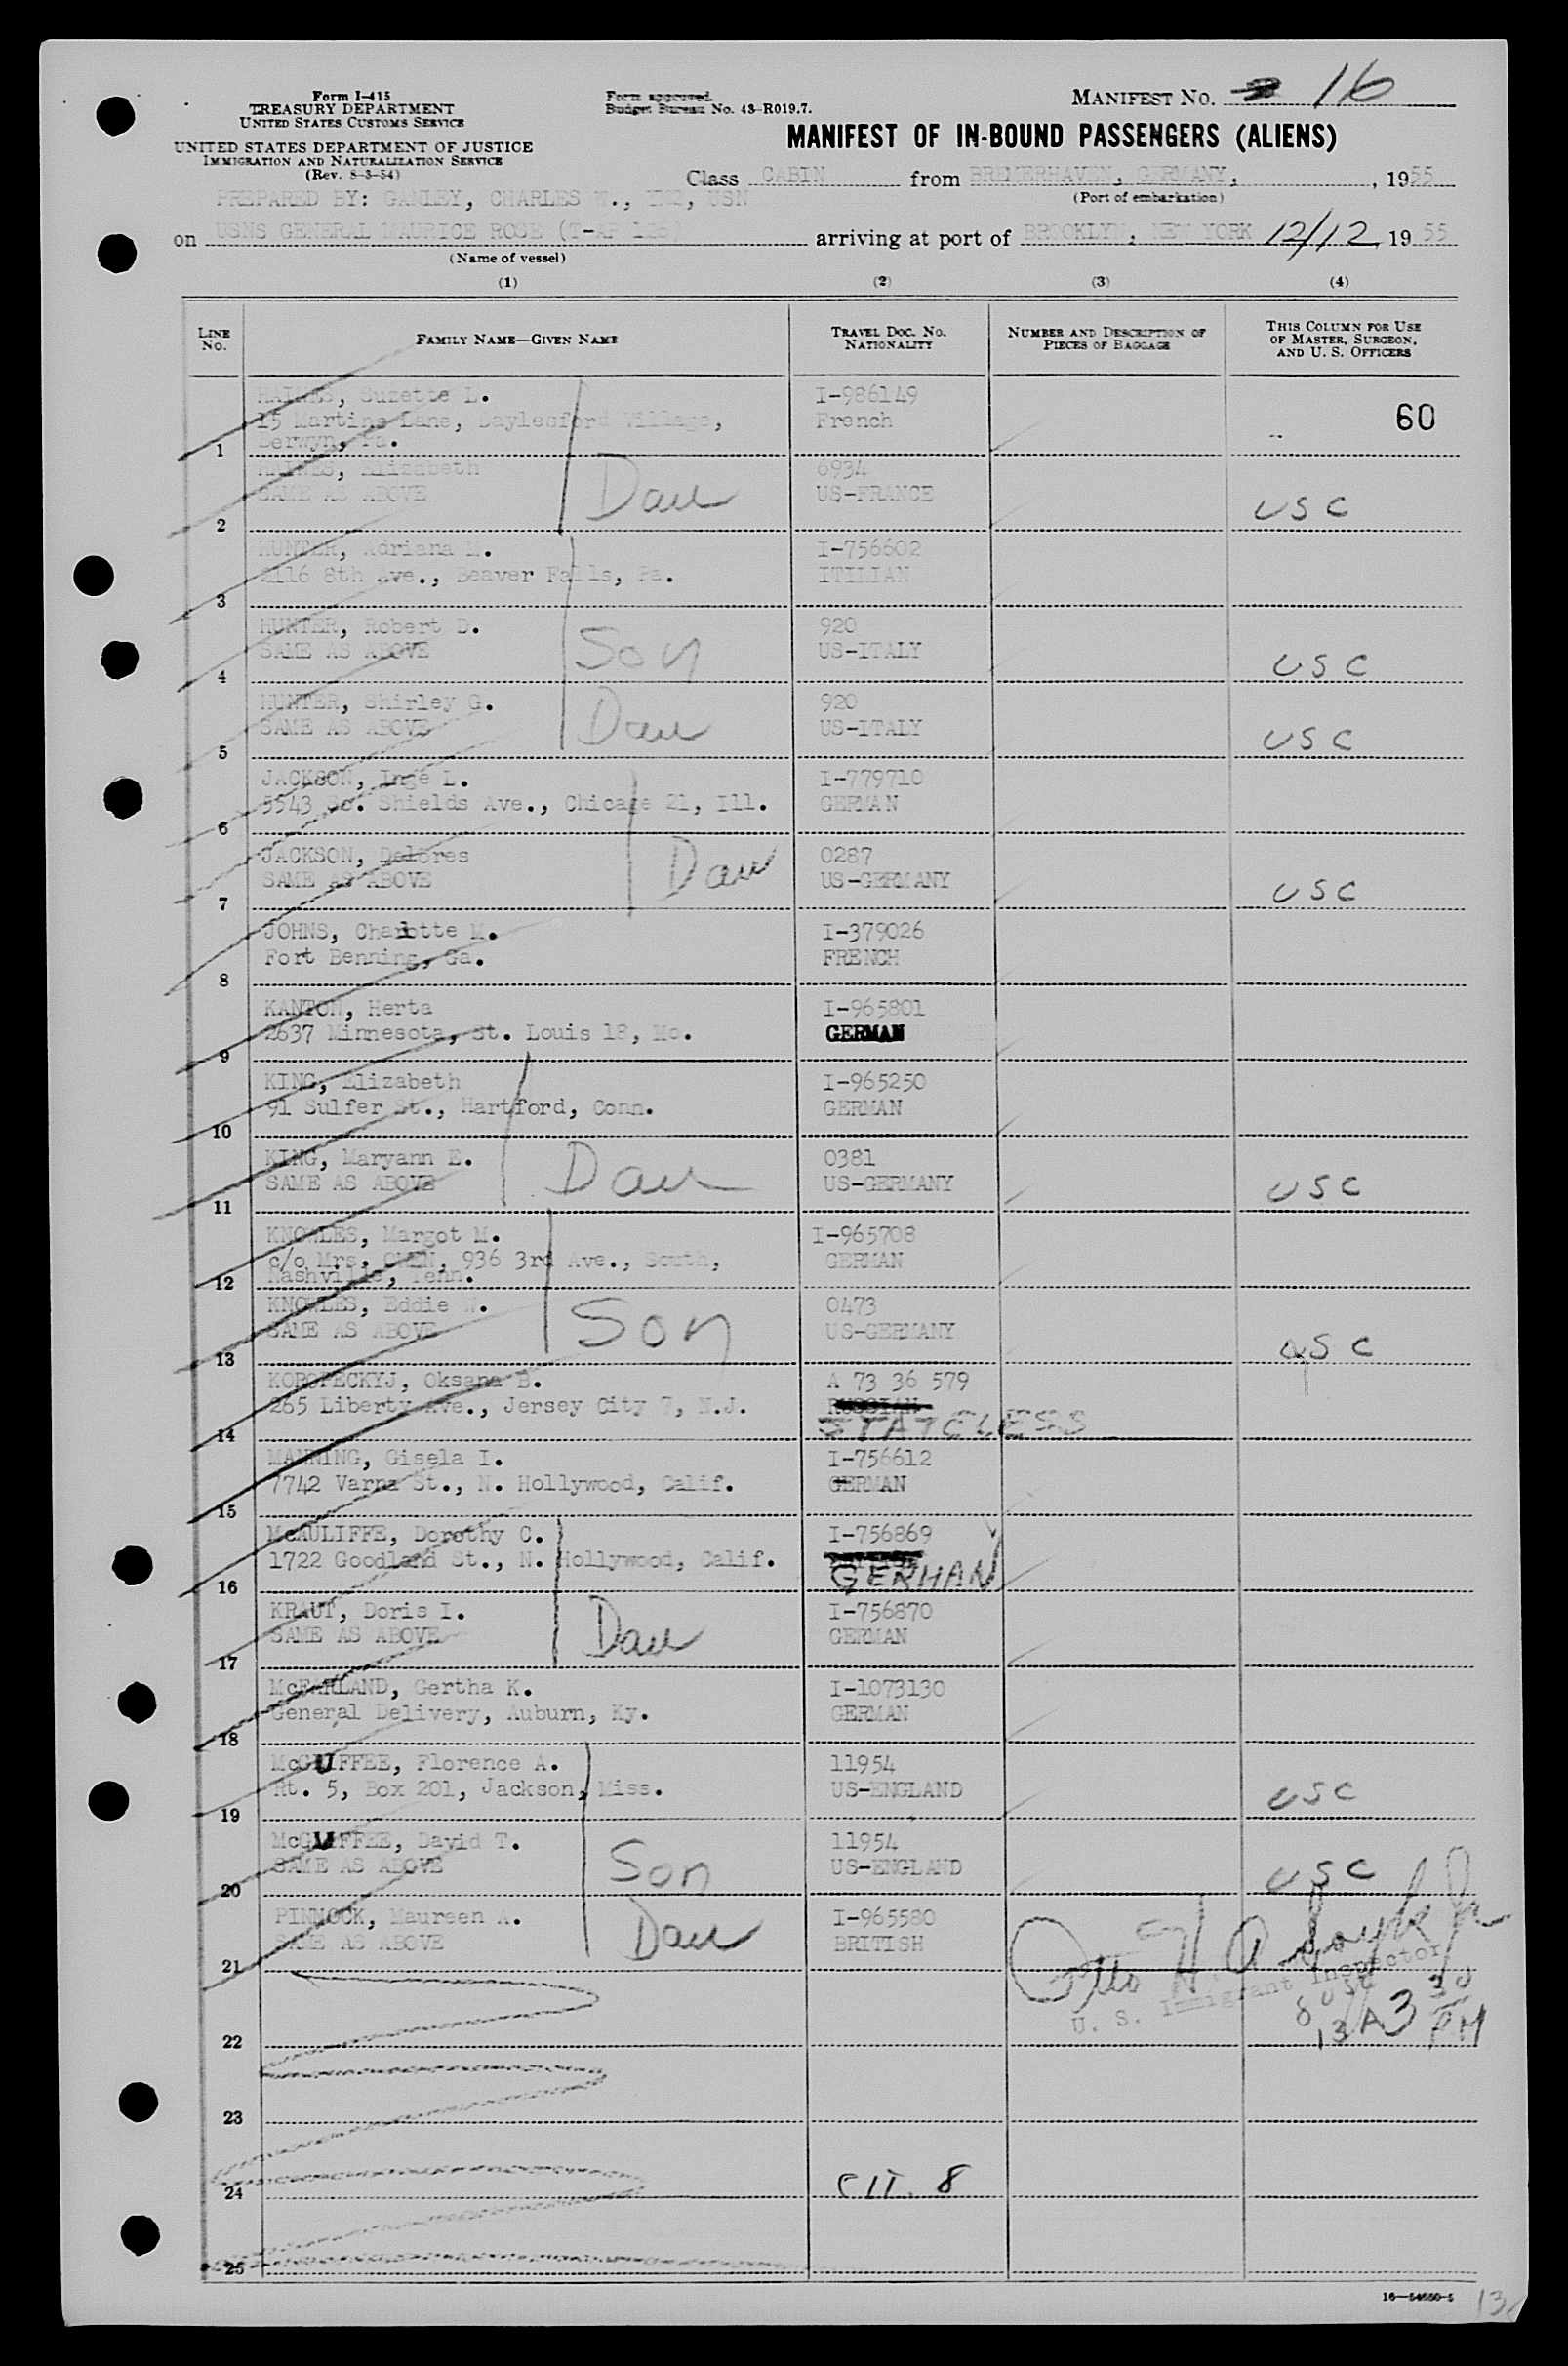 Form I-415
TREASURY DEPARTMENT
UNITED STATES CUSTOMS SERVICE
UNITED STATES DEPARTMENT OF JUSTICE
IMMIGRATION AND NATURALIZATION SERVICE
(Rev. 8-3-54)
Form approved.
Budget Bureau No. 43-R019.7.
MANIFEST NO. 16
MANIFEST OF IN-BOUND PASSENGERS (ALIENS)
Class CABIN from BREMERHAVEN, GERMANY, , 1955
(Port of embarkation)
PREPARED BY: GANLEY, CHARLES W., USN
on USNS GENERAL MAURICE ROSE (T-AP 126) arriving at port of BROOKLYN, NEW YORK 12/12, 1955
(Name of vessel)
(1) (2) (3) (4)
LINE NO. FAMILY NAME—GIVEN NAME TRAVEL DOC. NO. NATIONALITY NUMBER AND DESCRIPTION OF PIECES OF BAGGAGE THIS COLUMN FOR USE OF MASTER, SURGEON, AND U. S. OFFICERS
HAINES, Suzette L. I-986149
15 Martins Lane, Daylesford Village, French 60
1 Berwyn, Pa.
HAINES, Elizabeth 6934
SAME AS ABOVE Dau US-FRANCE
2 USC
HUNTER, Adriana M. I-756602
2116 8th Ave., Beaver Falls, Pa. ITILIAN
3
HUNTER, Robert D. 920
SAME AS ABOVE Son US-ITALY
4 USC
HUNTER, Shirley G. 920
SAME AS ABOVE Dau US-ITALY
5 USC
JACKSON, Inge L. I-779710
5543 So. Shields Ave., Chicage 21, Ill. GERMAN
6
JACKSON, Delores 0287
SAME AS ABOVE Dau US-GERMANY
7 USC
JOHNS, Charlotte M. I-379026
Fort Benning, Ga. FRENCH
8
KANTON, Herta I-965801
2637 Minnesota, St. Louis 18, Mo. GERMAN
9
KING, Elizabeth I-965250
91 Sulfer St., Hartford, Conn. GERMAN
10
KING, Maryann E. 0381
SAME AS ABOVE Dau US-GERMANY
11 USC
KNOWLES, Margot M. I-965708
c/o Mrs. OWEN, 936 3rd Ave., South, GERMAN
12 Nashville, Tenn.
KNOWLES, Eddie W. 0473
SAME AS ABOVE Son US-GERMANY
13 USC
KOROPECKYJ, Oksana B. A 73 36 579
265 Liberty Ave., Jersey City 7, N.J. RUSSIAN
14 STATELESS
MANNING, Gisela I. I-756612
7742 Varna St., N. Hollywood, Calif. GERMAN
15
McAULIFFE, Dorothy C. I-756869
1722 Goodland St., N. Hollywood, Calif.
16 GERMAN
KRAUT, Doris I. I-756870
SAME AS ABOVE Dau GERMAN
17
McFARLAND, Gertha K. I-1073130
General Delivery, Auburn, Ky. GERMAN
18
McGUFFEE, Florence A. 11954
Rt. 5, Box 201, Jackson, Miss. US-ENGLAND
19 USC
McGUFFEE, David T. 11954
SAME AS ABOVE Son US-ENGLAND
20 USC
PINNOCK, Maureen A. I-965580
SAME AS ABOVE Dau BRITISH
21
U. S. Immigrant Inspector
22 3 30 PM
23
24 CIT. 8
25
16—54650-5